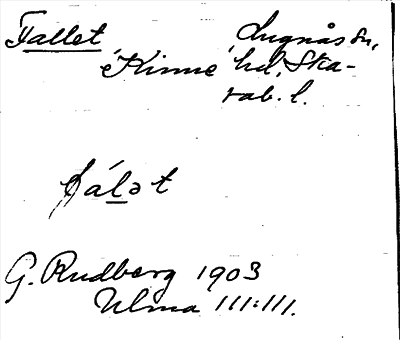 Fallet Lugnås sn,
Kinne hd, Ska-
rab. l.
fálət
G. Rudberg 1903
Ulma 111:111.